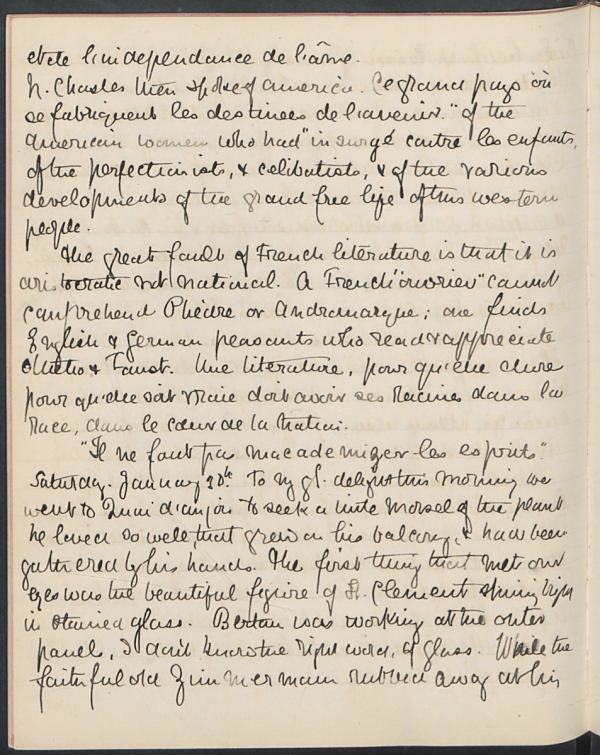 et de l'independance de l'âme.
M. Chasles then spoke of america. Ce grand pays où
se fabriquent les destinées de l'avenir." of the
american women who had "insurgé contre les enfants,
of the perfectionists, & celibatists, & of the various
developments of the grand free life of this western
people.
The great fault of French literature is that it is
aristocratic not national. A French "ouvrier" cannot
comprehend Phèdre or Andromaque; one finds
English & German peasants who read & appreciate
Othello & Faust. Une literature, pour qu'elle dure
pour qu'elle soit vraie doit avoir ses racines dans la
race, dans le cœur de la nation.
"Il ne faut pas macademizer les esprits".
Saturday. January 20th. To my gt. delight this morning we
went to Quai d'anjou to seek a little morsel of the plant
he loved so well, that grew on his balcony, & had been
gathered by his hands. The first thing that met our
eyes was the beautiful figure of St. Clement shining bright
in stained glass. was working at the outer
panels, I don't know the right word, of glass. While the
faithful old Zimmermann rubbed away at his